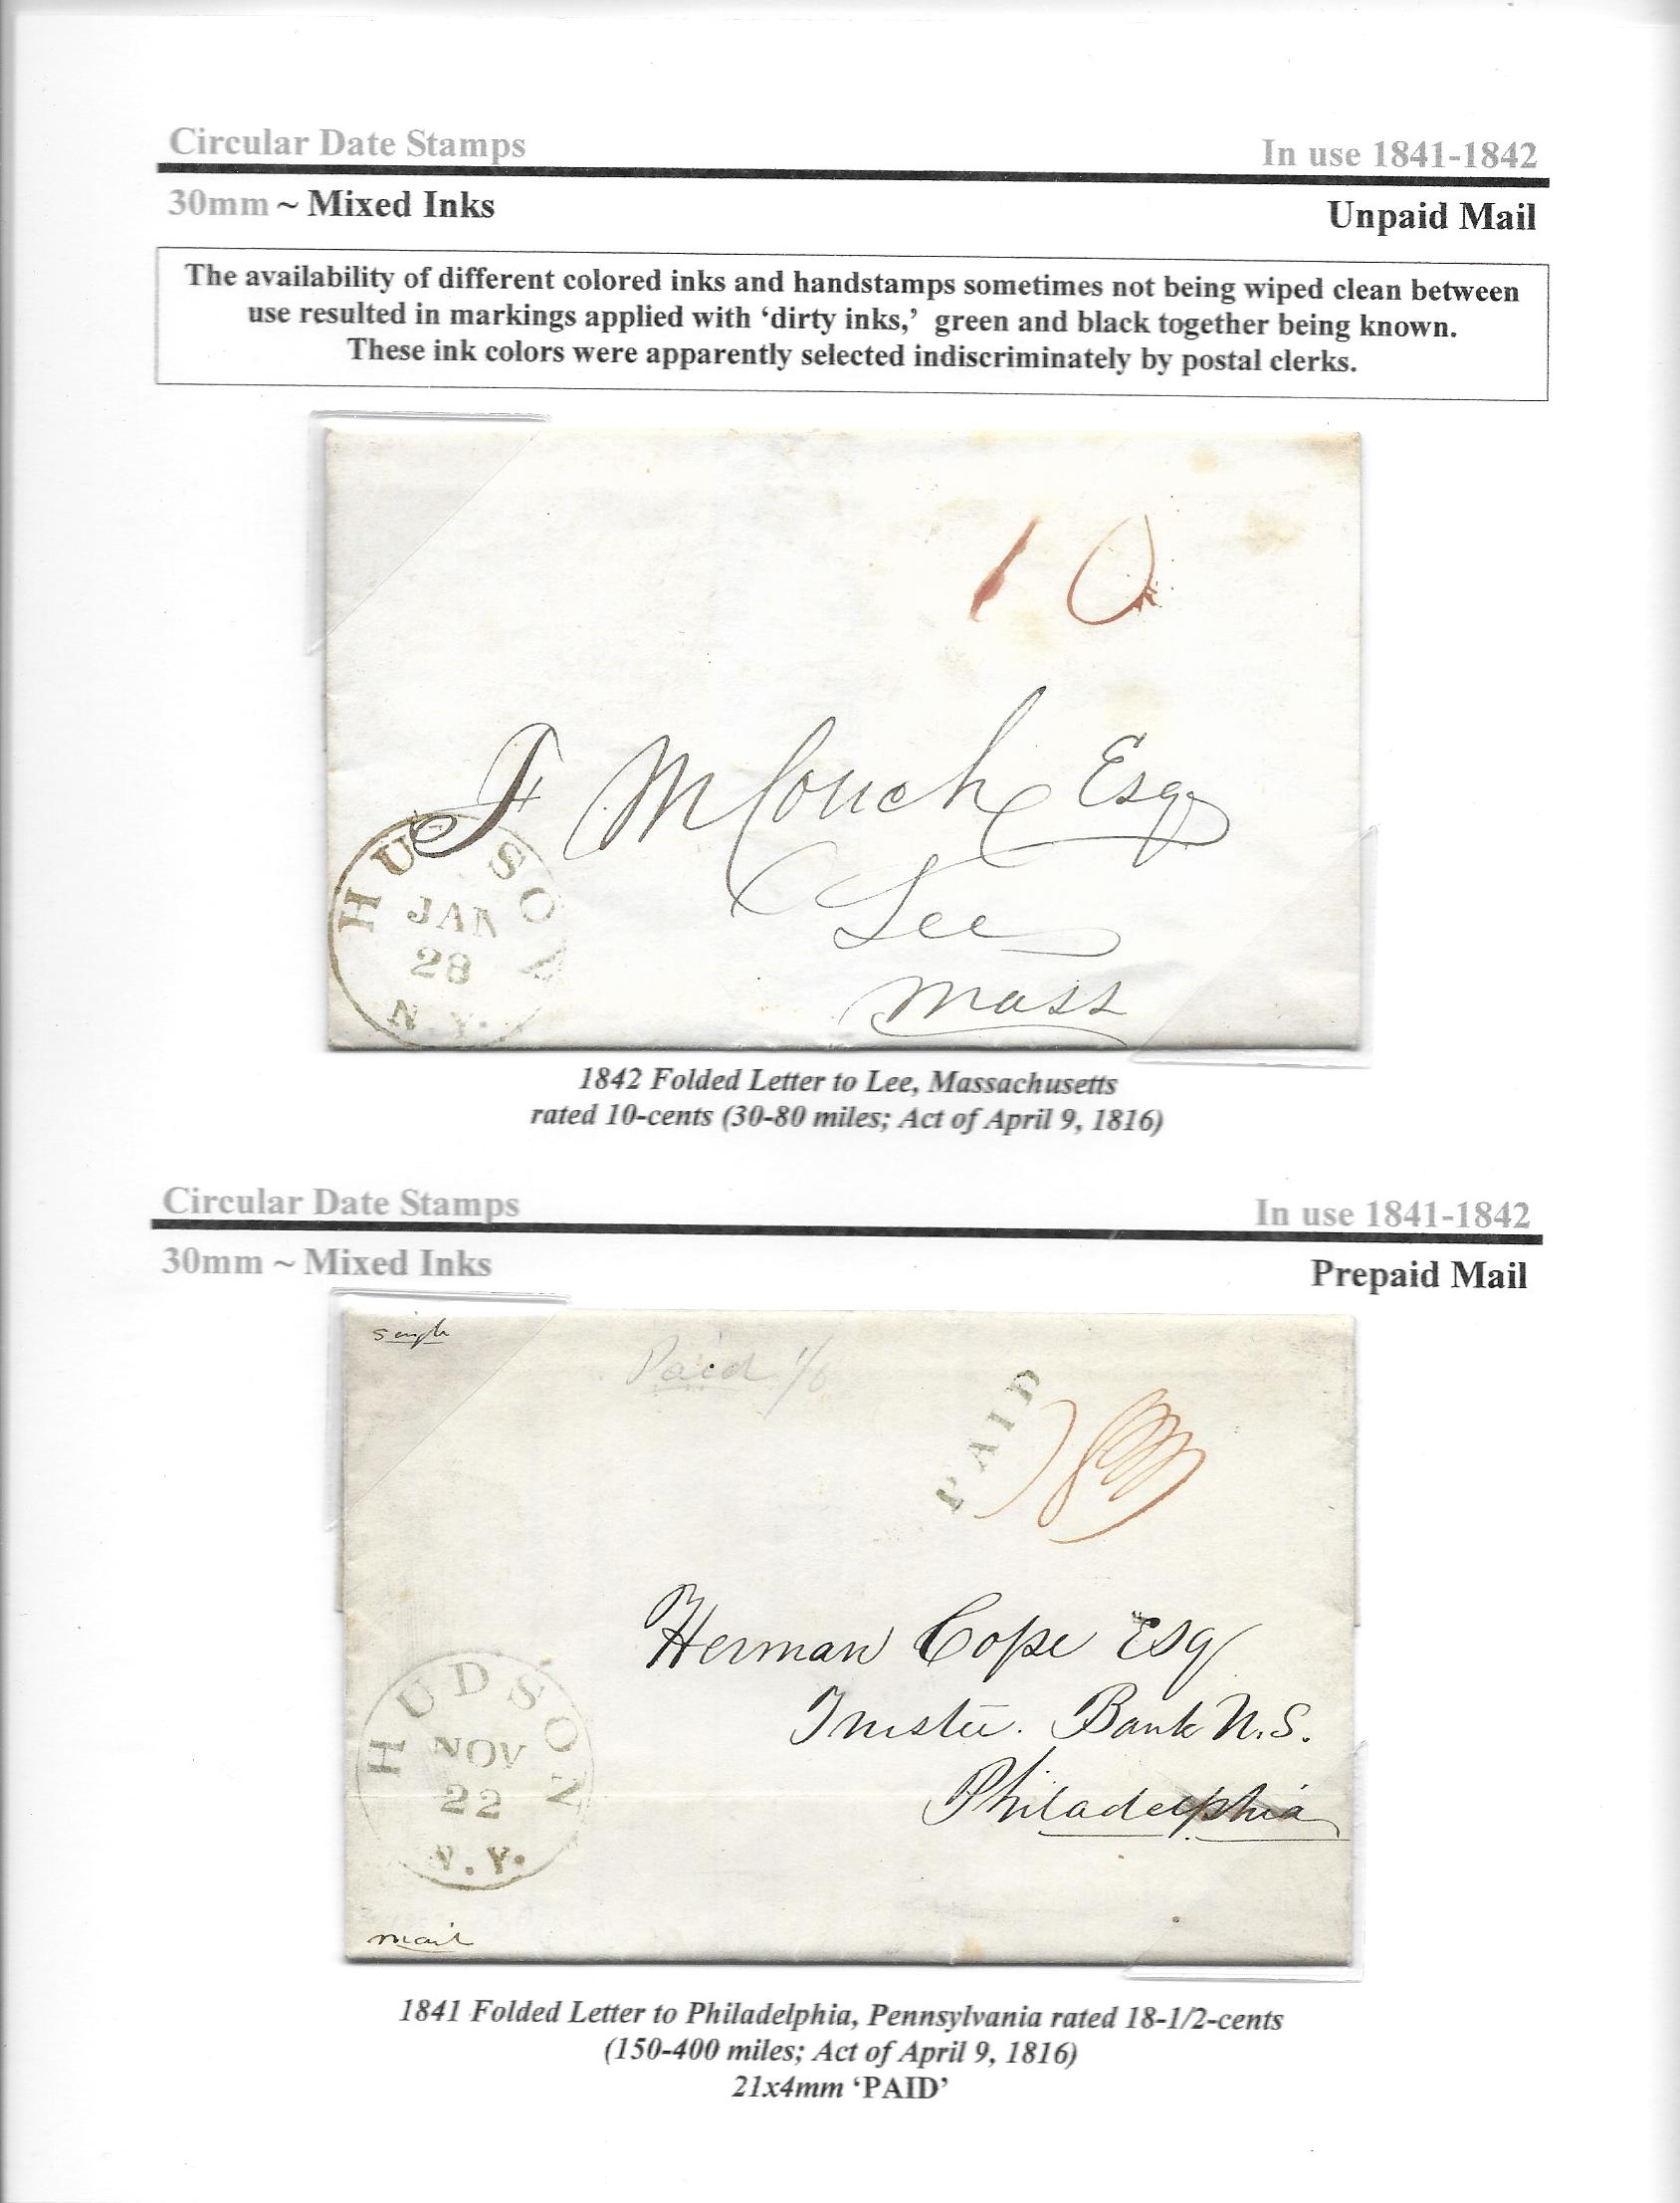 Circular Date Stamps In use 1841-1842
30mm ~ Mixed Inks Unpaid Mail
The availability of different colored inks and handstamps sometimes not being wiped clean between
use resulted in markings applied with ‘dirty inks,’ green and black together being known.
These ink colors were apparently selected indiscriminately by postal clerks.
10
F M Couch Esq
Lee
Mass
HUDSON
JAN
28
N.Y.
1842 Folded Letter to Lee, Massachusetts
rated 10-cents (30-80 miles; Act of April 9, 1816)
Circular Date Stamps In use 1841-1842
30mm ~ Mixed Inks Prepaid Mail
Paid
PAID
Herman Cope Esq
Trustee. Bank U.S.
Philadelphia
HUDSON
NOV
22
N.Y.
mail
1841 Folded Letter to Philadelphia, Pennsylvania rated 18-1/2-cents
(150-400 miles; Act of April 9, 1816)
21x4mm ‘PAID’